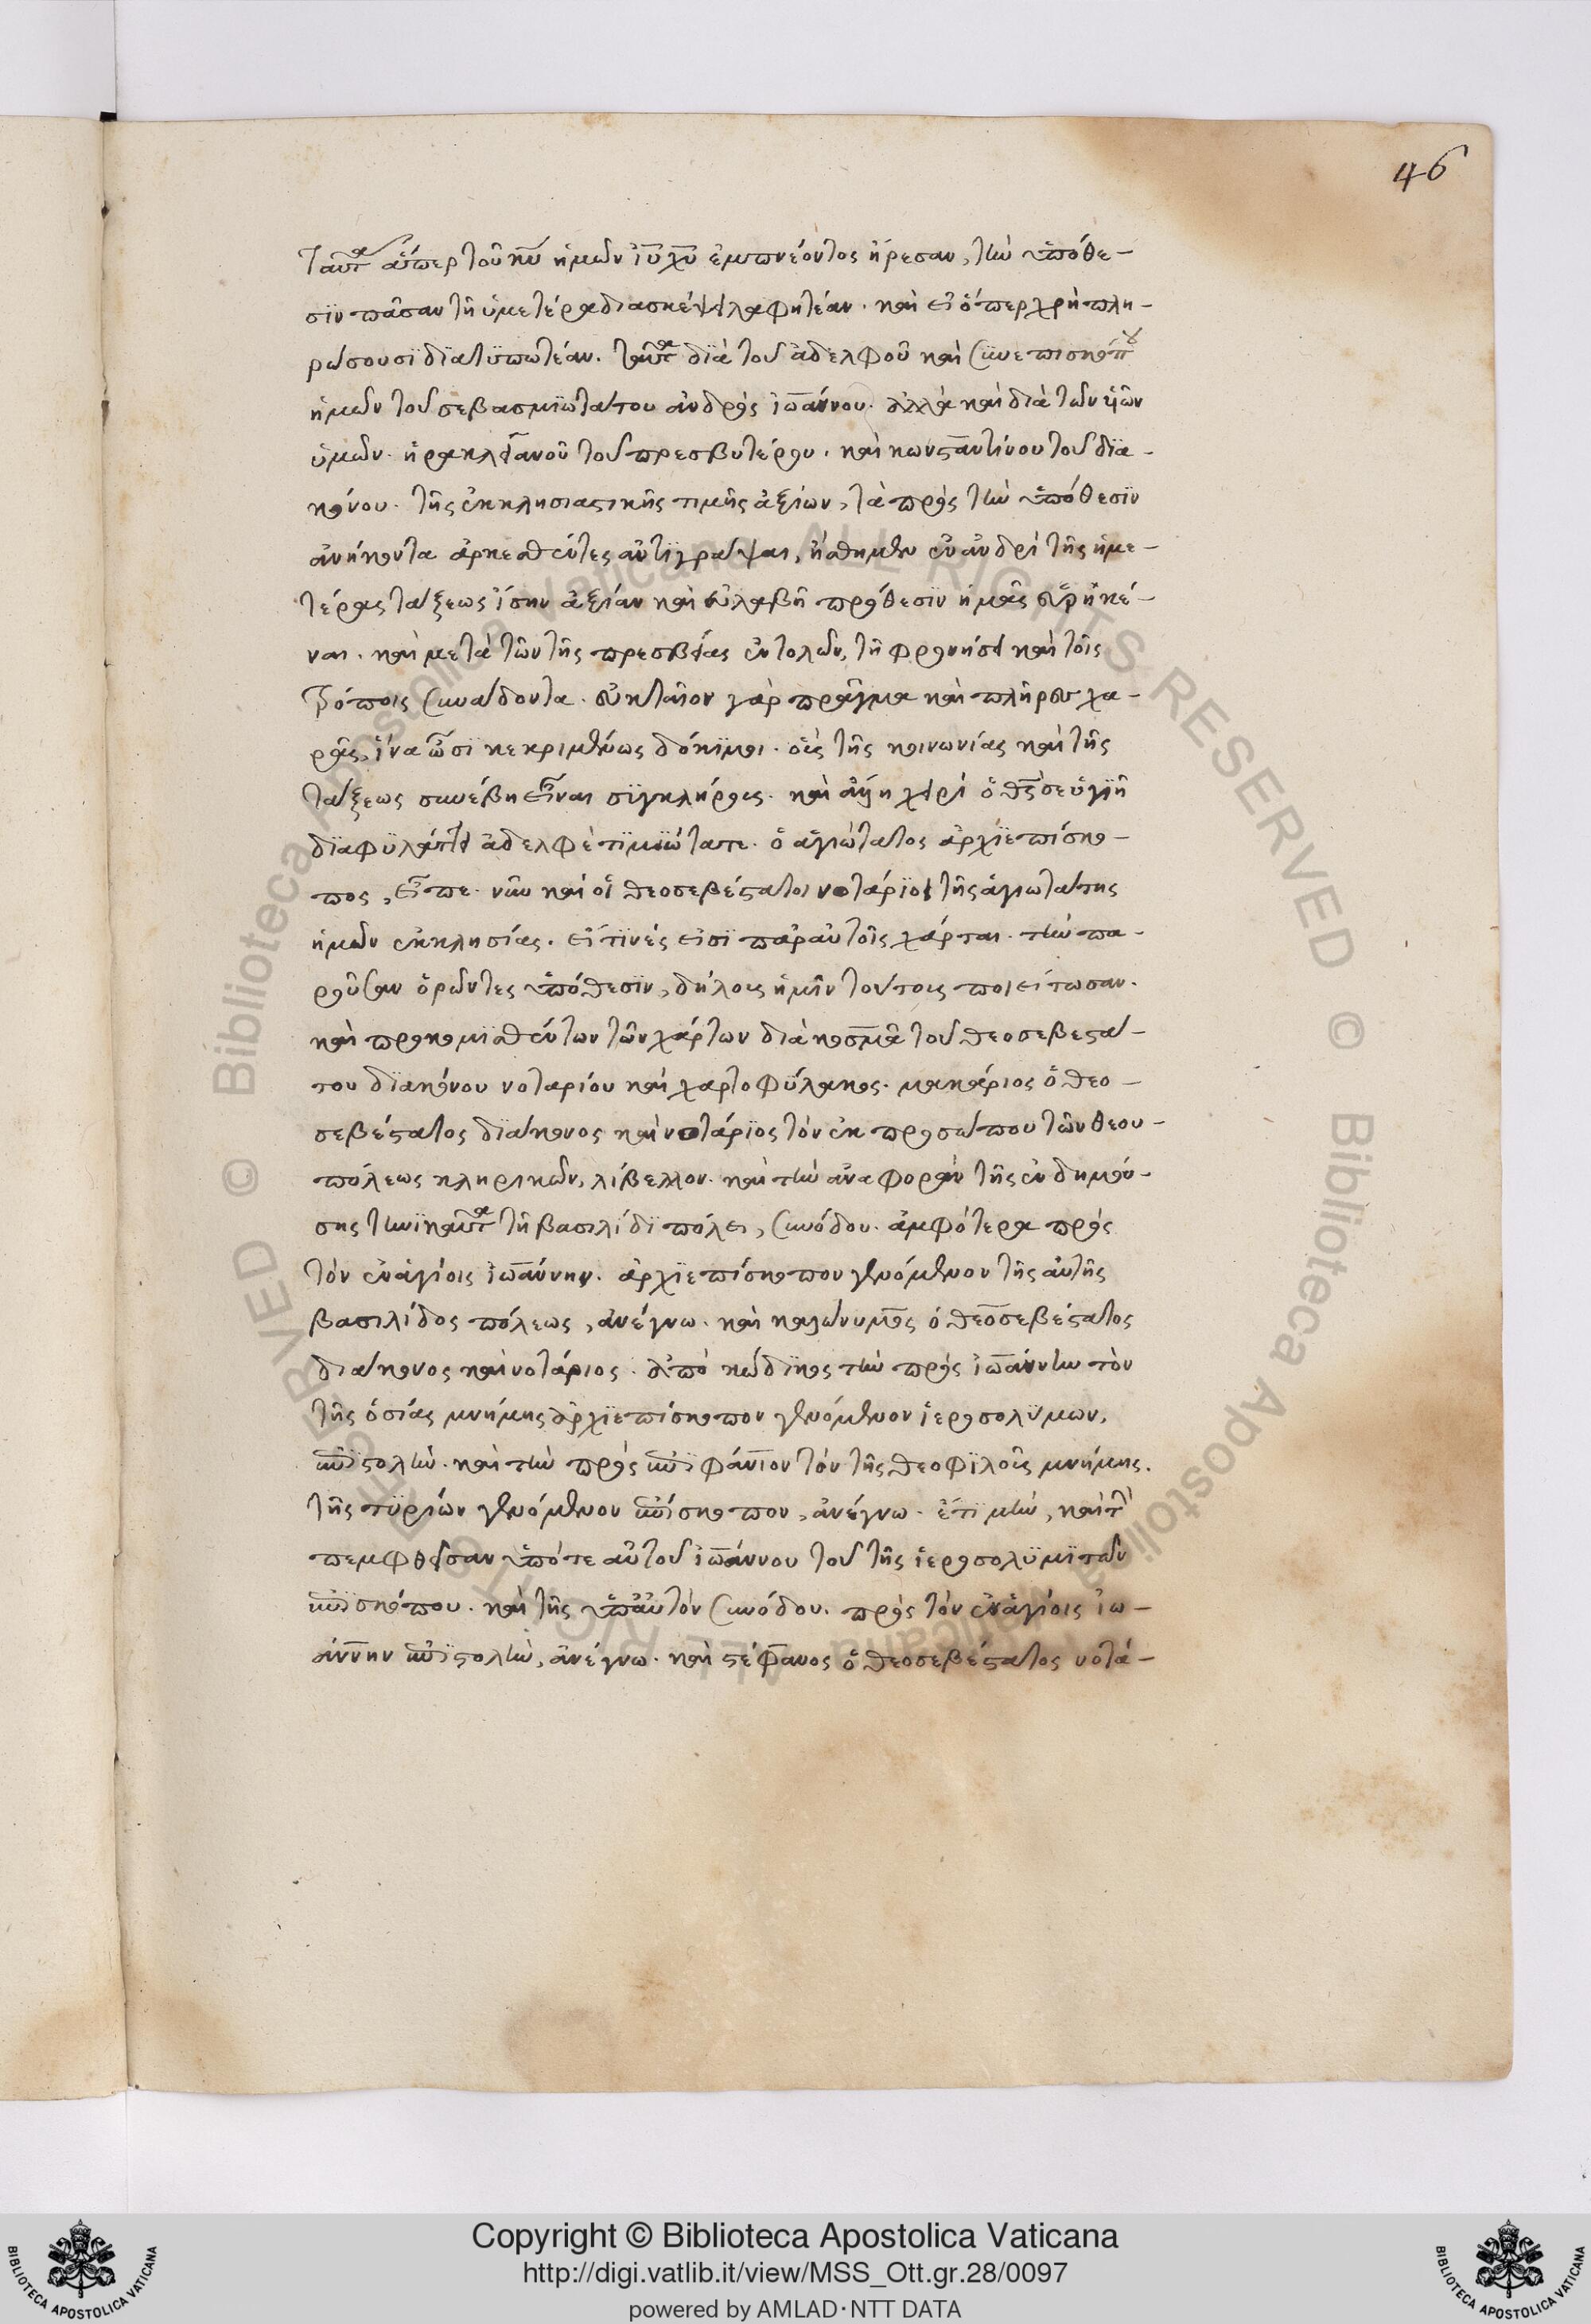 46
ταῦτα ἅπερ τοῦ κυ ἡμῶν ιυ χυ ἐμπνέοντος ἤρεσαν, τὴν ὑπόθε-
σιν πᾶσαν τῆ ὑμετέρα διασκέψει ἀφητέαν. καὶ εἰ ὅπερ χρὴ πλη-
ρώσουσι διατυπωτέαν. ταῦτα διὰ τοῦ ἀδελφοῦ καὶ συνεπισκόπου
ἡμῶν τοῦ σεβασμιωτάτου ἀνδρὸς ἰωάννου. ἀλλὰ καὶ διὰ τῶν υἱῶν
ὑμῶν. ἡρακλειανοῦ τοῦ πρεσβυτέρου. καὶ κωνσταντίνου τοῦ δια-
κόνου. τῆς ἐκκλησιαστικῆς τιμῆς ἀξίων, τὰ πρὸς τὴν ὑπόθεσιν
ἀνήκοντα ἀρκεσθέντες ἀντιγράψαι, ἤσθημεν ἐν ἀνδρὶ τῆς ἡμε-
τέρας τάξεως ἴσην ἀξίαν καὶ εὐλαβῆ πρόθεσιν ἡμᾶς εὑρηκέ-
ναι. καὶ μετὰ τῶν τῆς πρεσβείας ἐντολῶν, τῆ φρονήσει καὶ τοῖς
τρόποις συνάδοντα. εὐκταῖον γὰρ πρᾶγμα καὶ πλῆρες χα-
ρᾶς, ἵνα ὦσι κεκριμένως δόκιμοι. οἷς τῆς κοινωνίας καὶ τῆς
τάξεως συνέβη εἶναι συγκλήρους. καὶ ἄλλη χειρί ὁ θς σε ὑγιῆ
διαφυλάττει ἀδελφὲ τιμιώτατε. ὁ ἁγιώτατος ἀρχιεπίσκο-
πος, εἶπε. νῦν καὶ οἱ θεοσεβέστατοι νοτάριοι τῆς ἁγιωτάτης
ἡμῶν ἐκκλησίας. εἴ τινές εἰσι παρ' αὐτοῖς χάρται. τὴν πα-
ροῦσαν ὁρῶντες ὑπόθεσιν, δήλους ἡμῖν τούτους ποιείτωσαν.
καὶ προκομισθέντων τῶν χάρτων διὰ κοσμᾶ τοῦ θεοσεβεστά-
του διακόνου νοταρίου καὶ χαρτοφύλακος. μακάριος ὁ θεο-
σεβέστατος διάκονος καὶ νοτάριος τὸν ἐκ προσώπου τῶν θεου-
πόλεως κληρικῶν, λίβελλον. καὶ τὴν ἀναφορὰν τῆς ἐνδημού-
σης τηνικαῦτα τῆ βασιλίδι πόλει, συνόδου. ἀμφότερα πρὸς
τὸν ἐν ἁγίοις ἰωάννην. ἀρχιεπίσκοπον γενόμενον τῆς αὐτῆς
βασιλίδος πόλεως, ἀνέγνω. καὶ καλώνυμος ὁ θεοσεβέστατος
διάκονος καὶ νοτάριος. ἀπὸ κώδικος τὴν πρὸς ἰωάννην τὸν
τῆς ὁσίας μνήμης ἀρχιεπίσκοπον γενόμενον ἱεροσολύμων,
ἐπιστολὴν. καὶ τὴν πρὸς ἐπιφάνιον τὸν τῆς θεοφιλοῦς μνήμης.
τῆς τυρίων γενόμενον ἐπίσκοπον, ἀνέγνω. ἔτι μὴν, καὶ τὴν
πεμφθεῖσαν ὑπό τε αὐτοῦ ἰωάννου τοῦ τῆς ἱεροσολυμιτῶν
ἐπισκόπου. καὶ τῆς ὑπ' αὐτὸν συνόδου. πρὸς τὸν ἐν ἁγίοις ἰω-
άννην ἐπιστολὴν, ἀνέγνω. καὶ στέφανος ὁ θεοσεβέστατος νοτά-
Copyright © Biblioteca Apostolica Vaticana
http://digi.vatlib.it/view/MSS_Ott.gr.28/0097
powered by AMLAD · NTT DATA